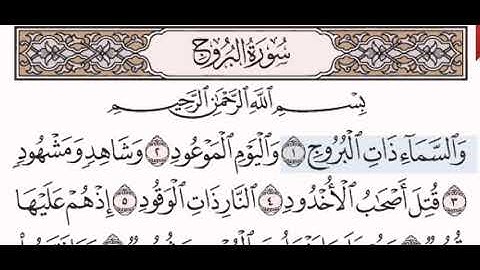 سُورَةُ البُرُوجِ
بِسْمِ ٱللَّهِ ٱلرَّحْمَٰنِ ٱلرَّحِيمِ
وَٱلسَّمَآءِ ذَاتِ ٱلْبُرُوجِ ١ وَٱلْيَوْمِ ٱلْمَوْعُودِ ٢ وَشَاهِدٍ وَمَشْهُودٍ
٣ قُتِلَ أَصْحَٰبُ ٱلْأُخْدُودِ ٤ ٱلنَّارِ ذَاتِ ٱلْوَقُودِ ٥ إِذْ هُمْ عَلَيْهَا